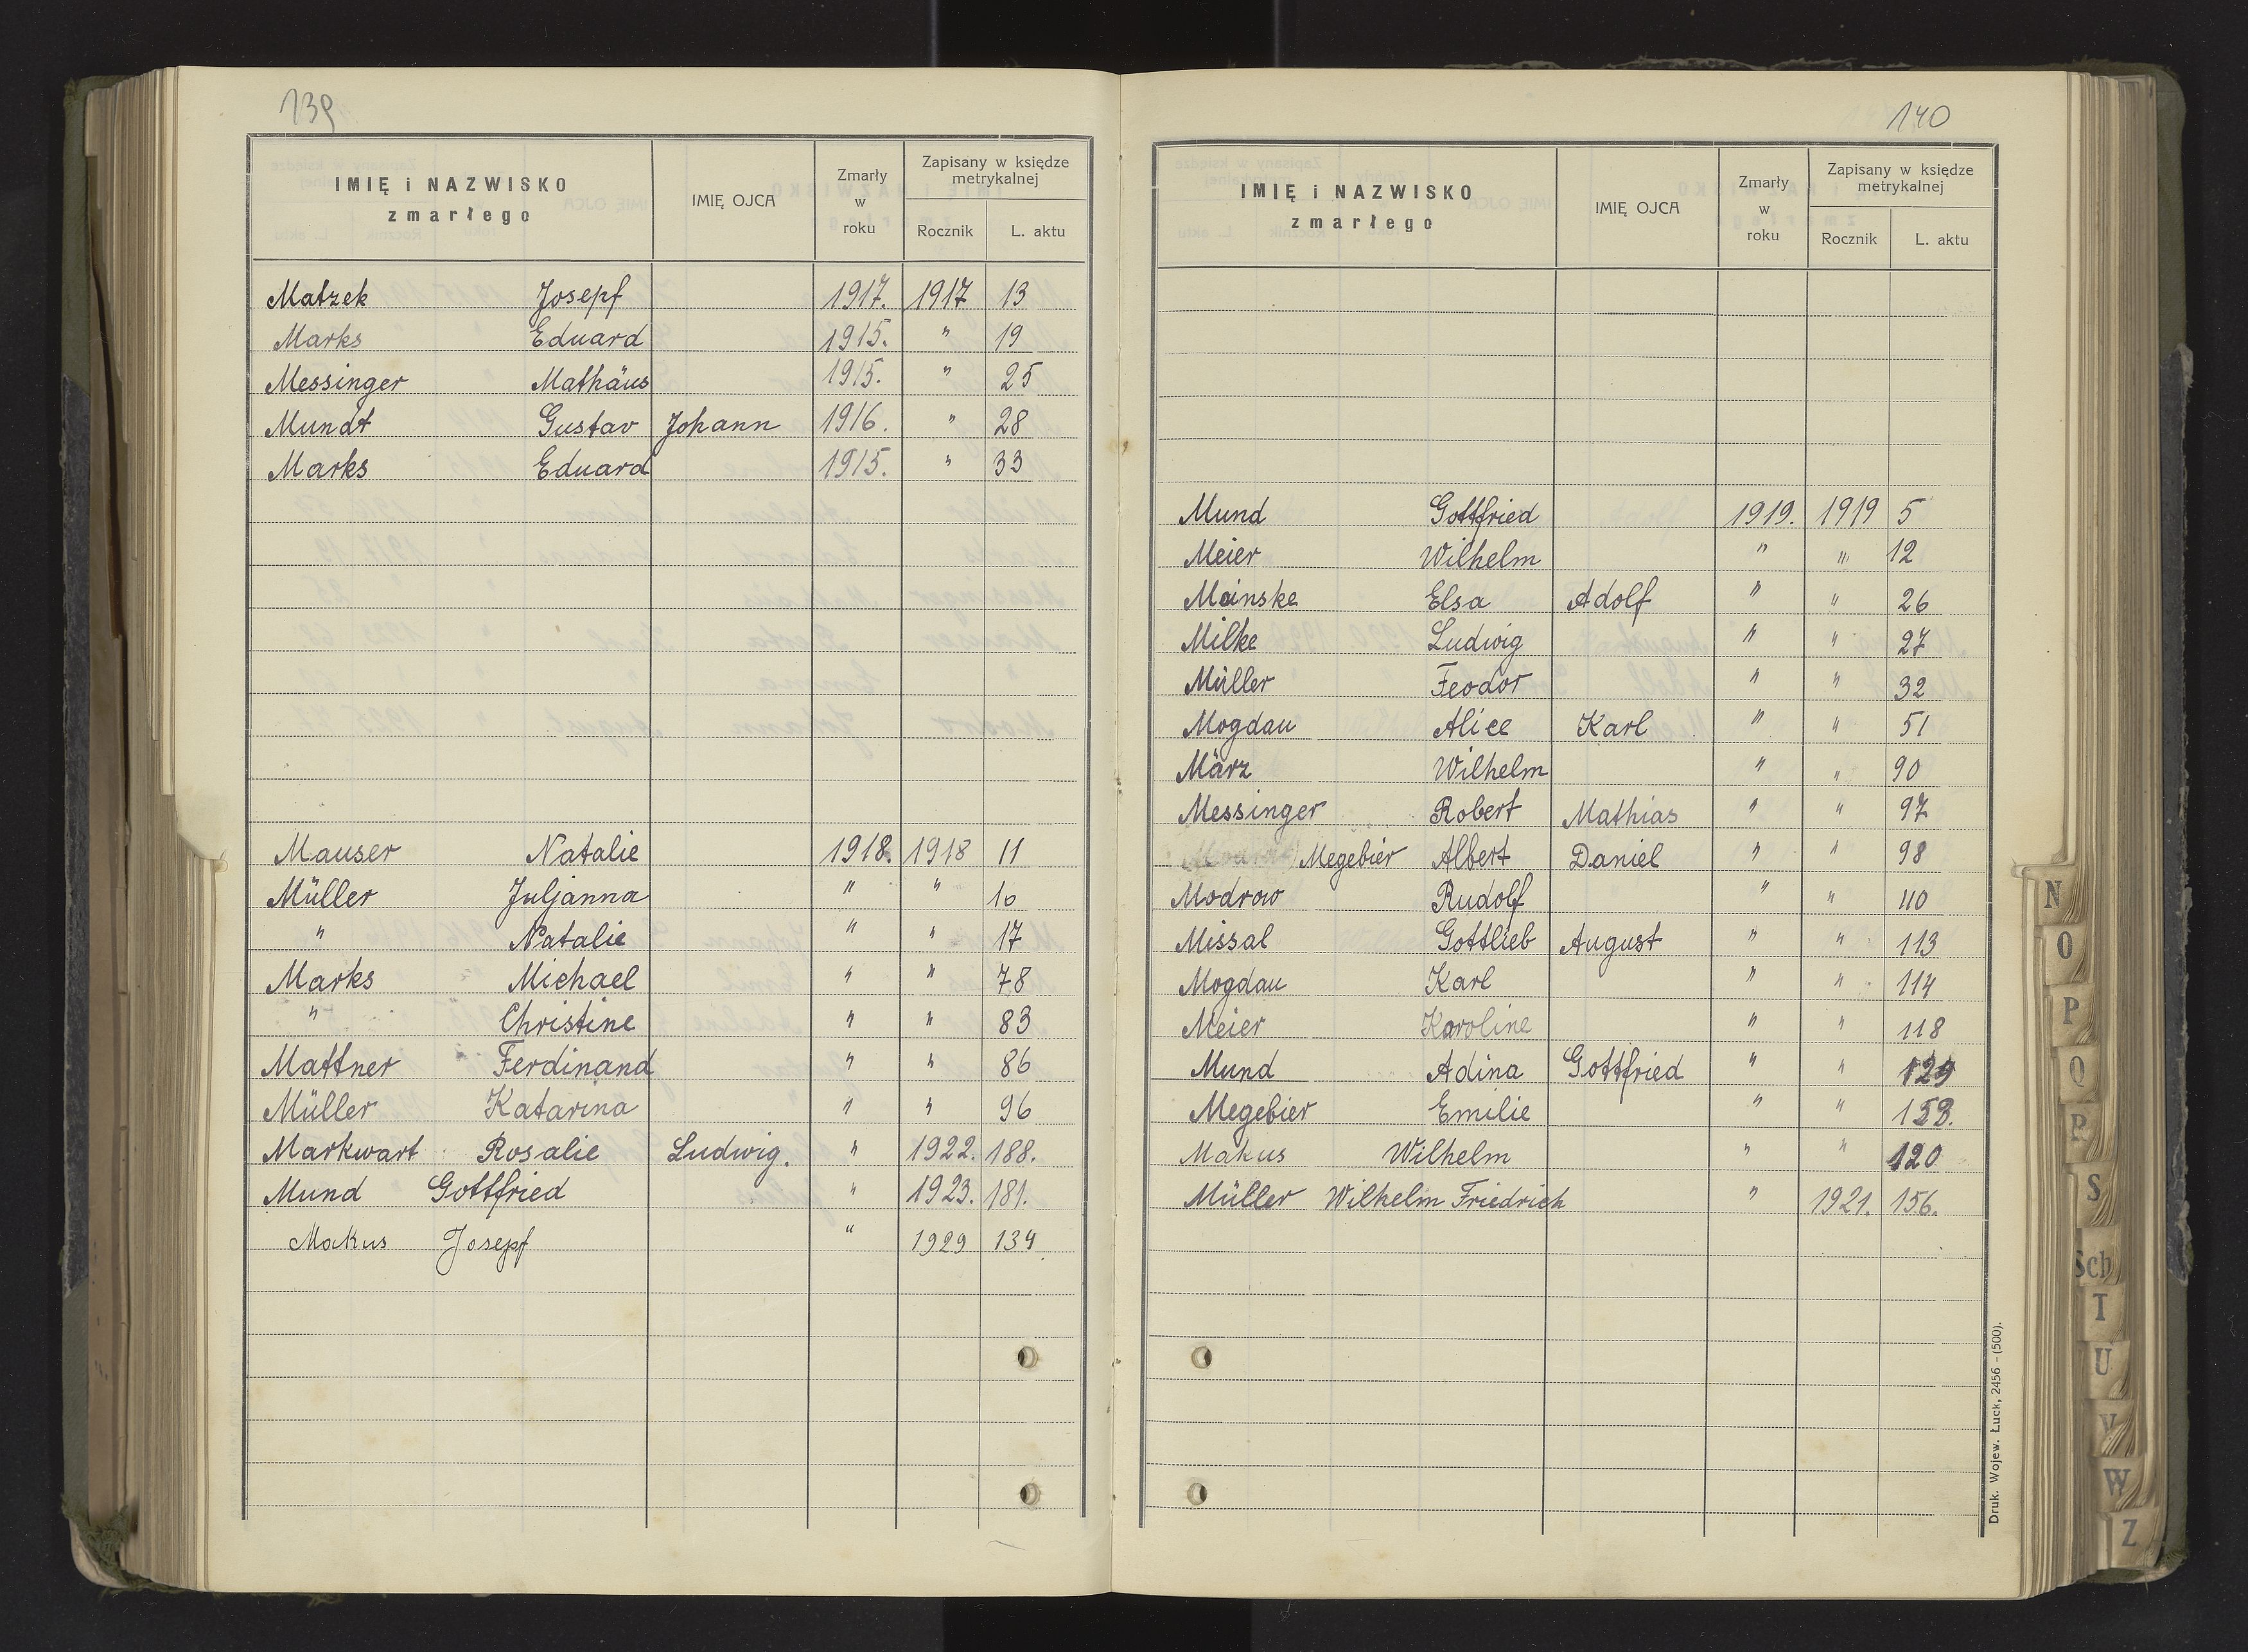 139
IMIĘ i NAZWISKO
zmarłego
IMIĘ OJCA
Zmarły
w
roku
Zapisany w księdze
metrykalnej
Rocznik L. aktu
Matzek Josepf 1917. 1917 13
Marks Eduard 1915. " 19
Messinger Mathäus 1915. " 25
Mundt Gustav Johann 1916. " 28
Marks Eduard 1915. " 33
Mauser Natalie 1918. 1918 11
Müller Juljanna " " 10
" Natalie " " 17
Marks Michael " " 78
" Christine " " 83
Mattner Ferdinand " " 86
Müller Katarina " " 96
Markwart Rosalie Ludwig. " 1922. 188.
Mund Gottfried " 1923. 181.
Makus Josepf " 1929 134
140
IMIĘ i NAZWISKO
zmarłego
IMIĘ OJCA
Zmarły
w
roku
Zapisany w księdze
metrykalnej
Rocznik L. aktu
Mund Gottfried 1919. 1919 5
Meier Wilhelm " " 12
Mainske Elsa Adolf " " 26
Milke Ludwig " " 27
Müller Feodor " " 32
Mogdau Alice Karl " " 51
März Wilhelm " " 90
Messinger Robert Mathias " " 97
Megebier Albert Daniel " " 98
Modrow Rudolf " " 110
Missal Gottlieb August " " 113
Mogdau Karl " " 114
Meier Karoline " " 118
Mund Adina Gottfried " " 129
Megebier Emilie " "
Makus Wilhelm " " 120
Müller Wilhelm Friedrich " 1921. 156.
Druk. Wojew. Łuck, 2456 - (500).
N
O
P
Q
R
S
Sch
T
U
V
W
Z